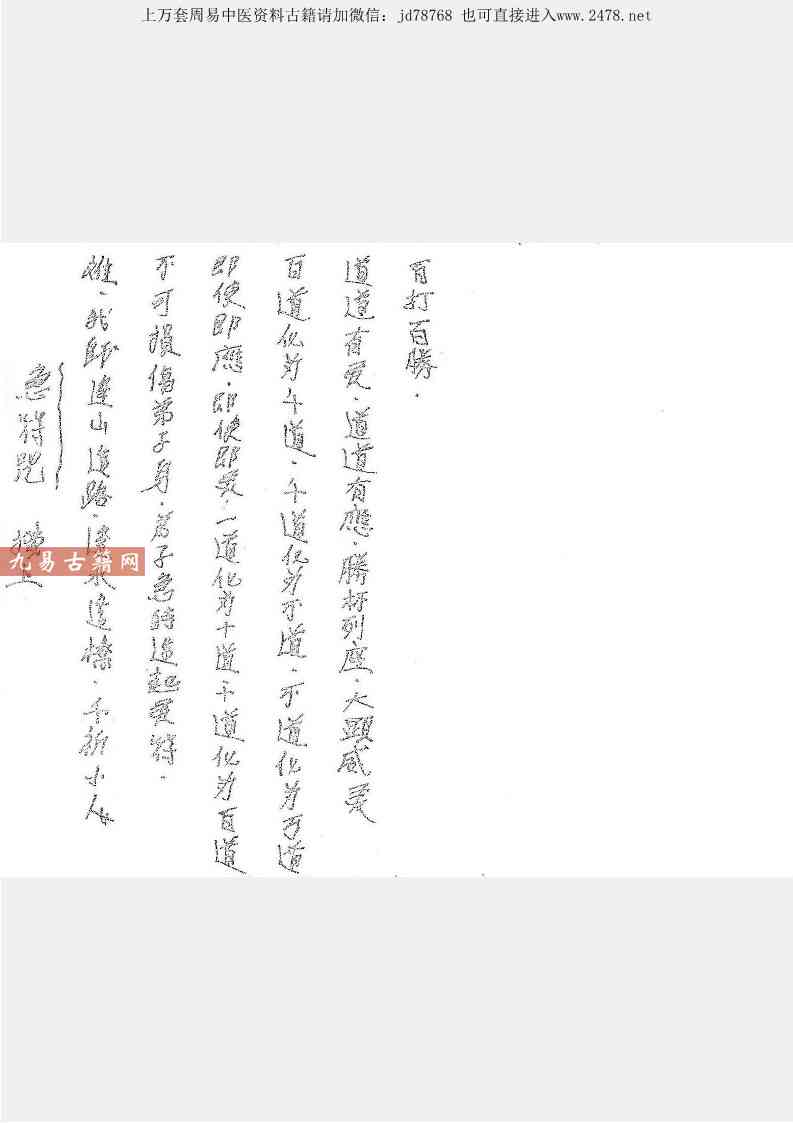 上万套周易中医资料古籍请加微信：jd78768 也可直接进入www.2478.net
急符咒 接上
我師逢山造路．逢水造橋．千祈小人
不可損傷弟子身．弟子急時造起灵符．
即使即應．即使即灵．一道化为十道．十道化为百道
百道化为千道．千道化为不道．不道化为万道
道道有灵．道道有應．勝杯列座．大顕威灵
百打百勝．
九易古籍网